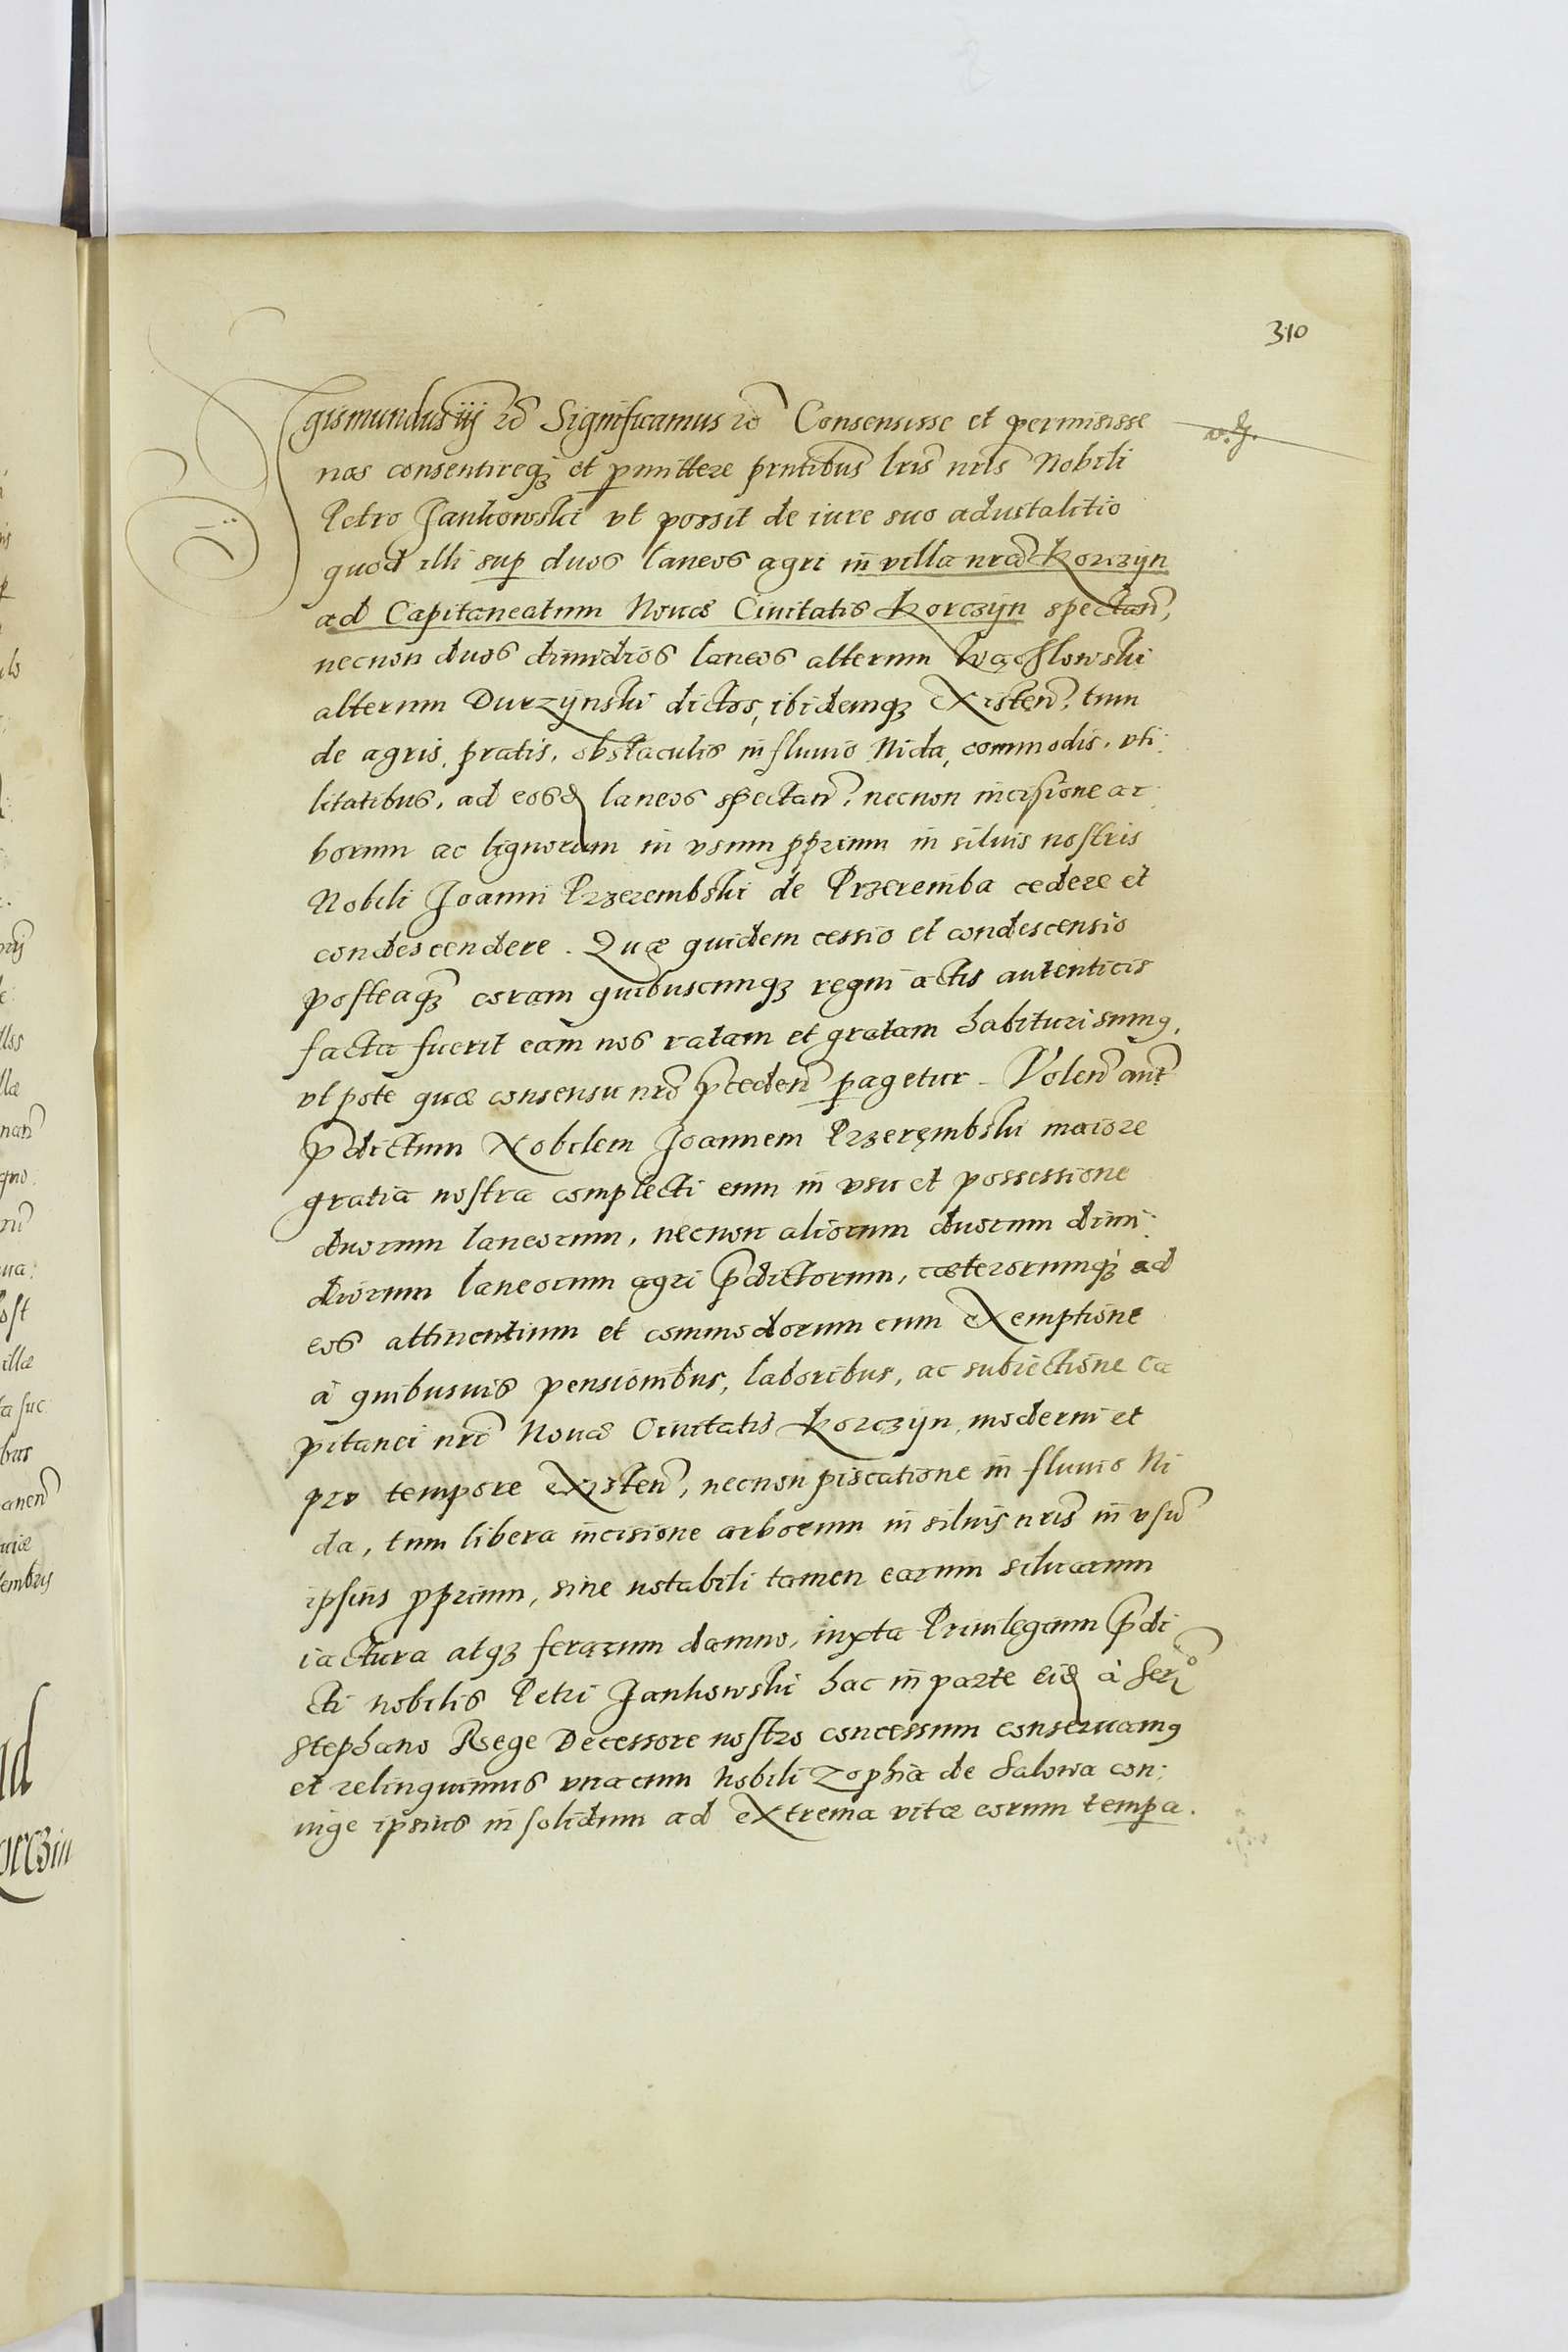 310
Sigismundus iij rc̃ Significamus rc̃ Consensisse et permisisse
nos consentireq3 et pmittere pntibus lris nris Nobili
Petro Jankowski vt possit de iure suo aduitalitio
quod illi sup duos laneos agri in villa nrã Korczÿn
ad Capitaneatum Nouæ Ciuitatis Korczÿn spectañ,
necnon duos dimidios laneos alterum Wąchlowski
alterum Durzÿnski dictos, ibidemq3 existeñ, tum
de agris, pratis, obstaculis in fluuio Nida, commodis, vti:
litatibus, ad eosd laneos spectañ, necnon incisione ar:
borum ac lignorum in vsum pprium in siluis nostris
Nobili Joanni Przerembski de Przeremba cedere et
condescendere. Quæ quidem cessio et condescensio
posteaq3 coram quibuscunq3 regni actis autenticis
facta fuerit eam nos ratam et gratam habituri sumq,
vt pote quæ consensu nrõ pcedeñ pagetur. Voleñ aut
pdictum Nobilem Joannem Przerębski maiore
gratia nostra complecti eum in vsu et possessione
duorum laneorum, necnon aliorum duorum dimi:
diorum laneorum agri pdictorum, cæterorumq3 ad
eos attinentium et commodorum cum exemptione
à quibusuis pensionibus, laboribus, ac subiectione Ca
pitanei nrĩ Nouæ Ciuitatis Korczÿn, moderni et
pro tempore existeñ, necnon piscatione in fluuio Ni
da, tum libera incisione arborum in siluis nris in vsũ
ipsius pprium, sine notabili tamen earum siluarum
iactura atq3 ferarum damno, iuxta Priuilegium pdi
cti nobilis Petri Jankowski hac in parte eid à Serᵒ
Stephano Rege Decessore nostro concessum conseruamq
et relinquimus vnacum Nobili Zophia de Salowa con:
iuge ipsius in solidum ad extrema vitæ eorum tempa.